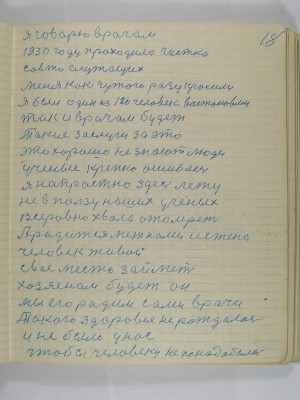 18
я говарю врачам
1930 году праходило чистка
савто служащих
меня как чужого разу бросили
я был один из 180 человек вастановили
так и врачам будет
такие заслуги за это
это хорошо не знают люди
ученые крепко ошиблись
я напрастно здесь лежу
не в ползу наших ученых
всеровно хвала отомрет
А радится метками истено
человек живой
свае место займет
хозяенам будет он
мы его радим сами врачи
Такого здоровие не рождалос
и не было у нас
чтобы человеку не понадобилас